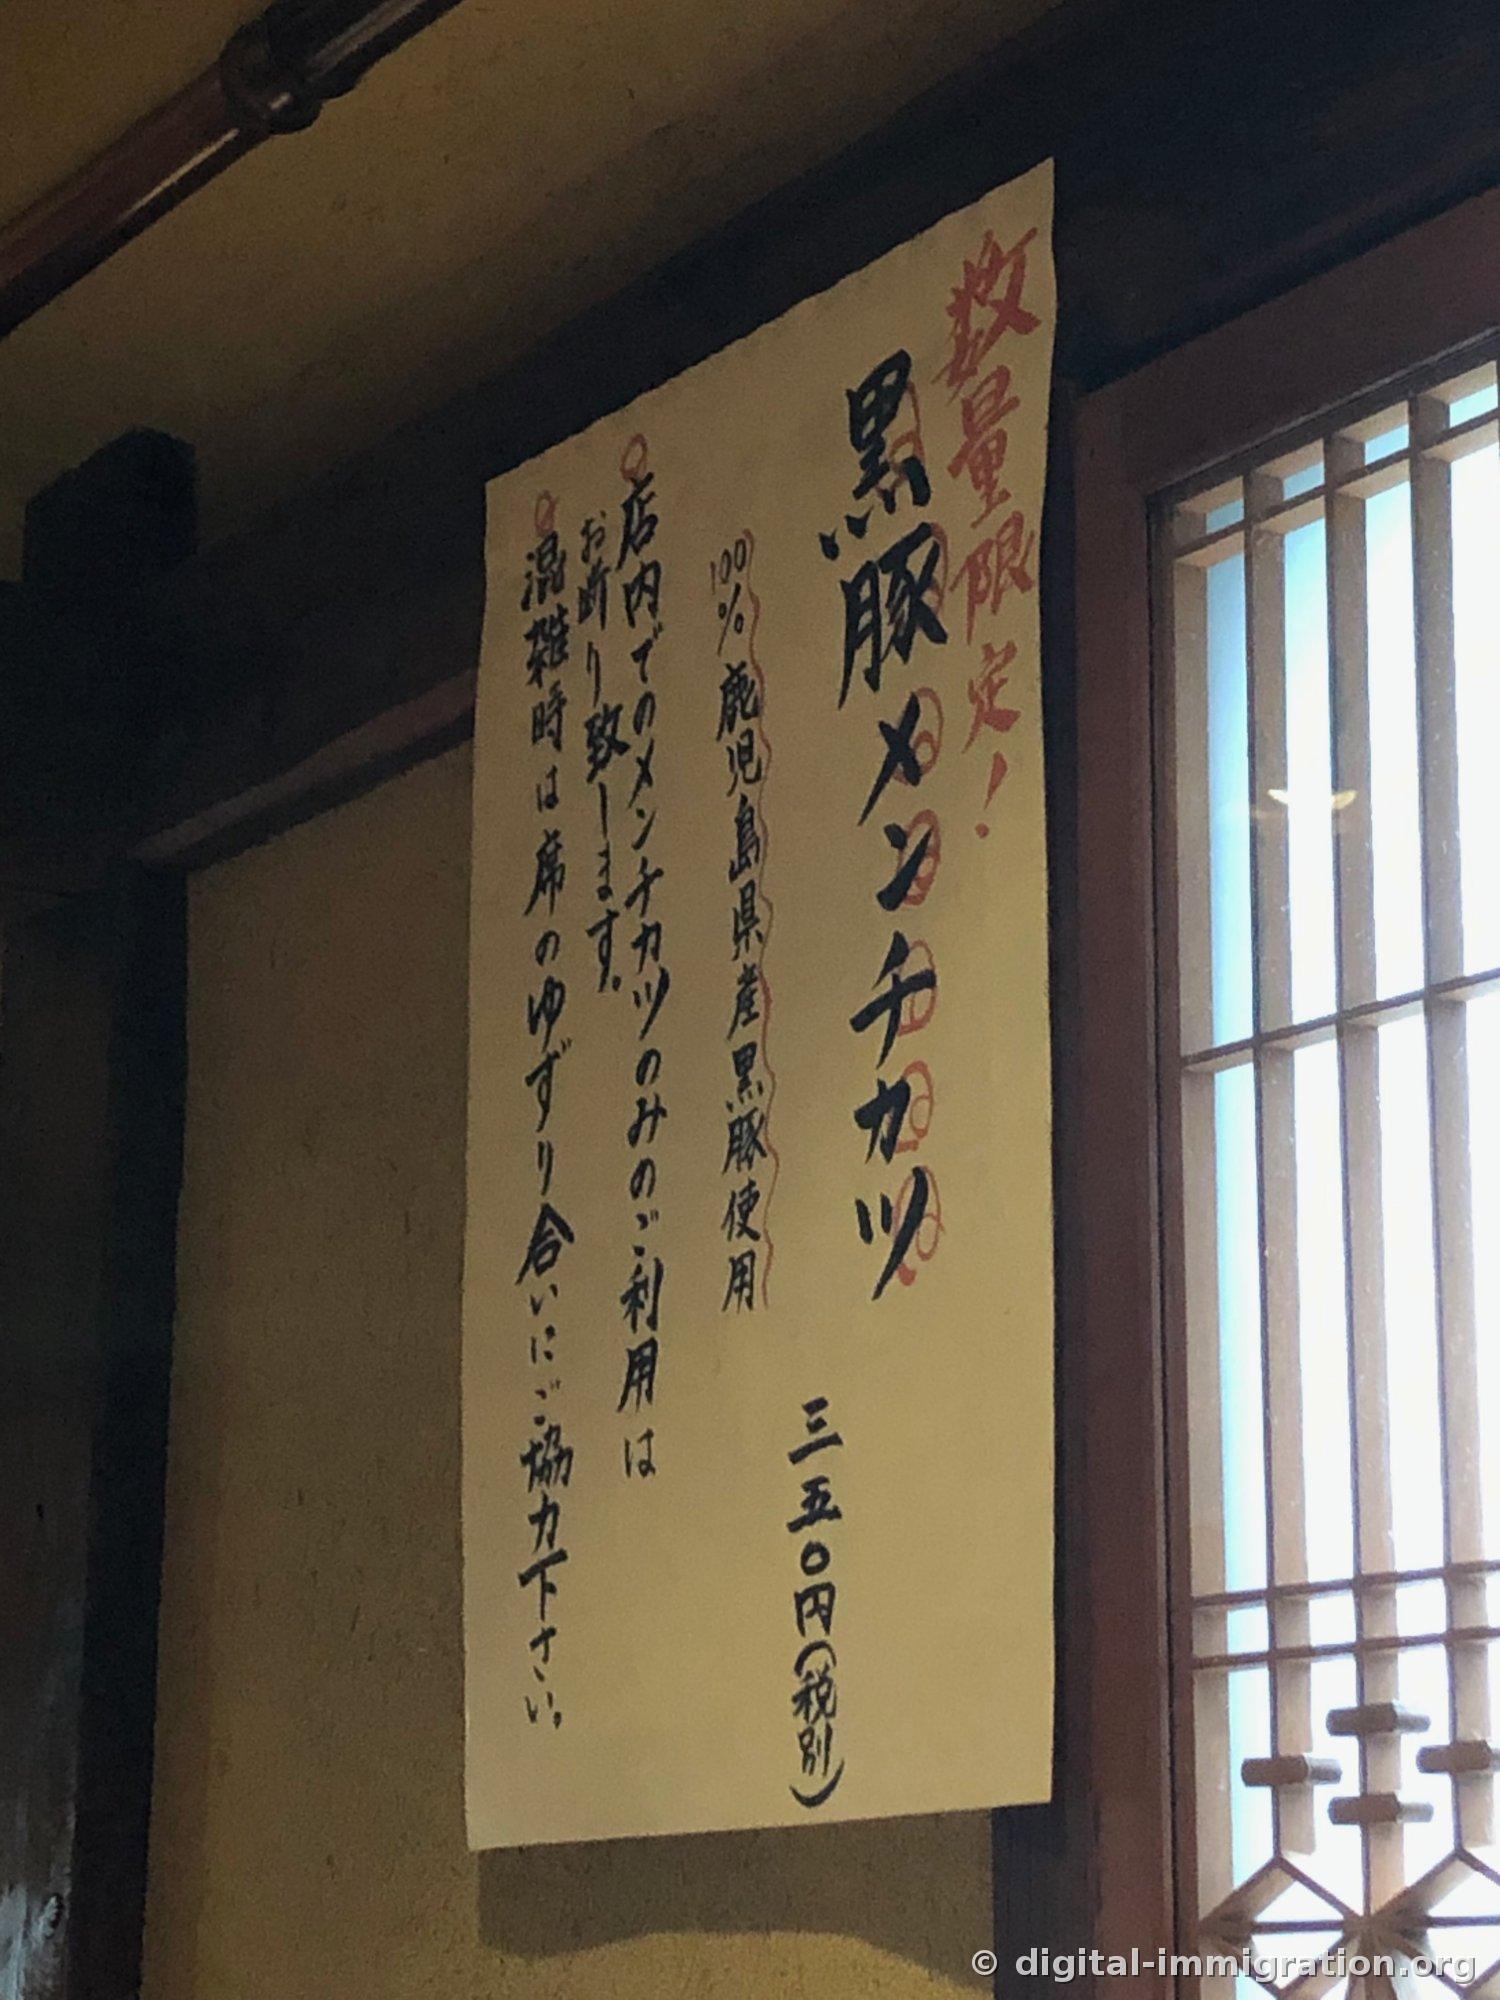 数量限定!
黒豚メンチカツ
三五〇円(税別)
100%鹿児島県産黒豚使用
店内でのメンチカツのみのご利用は
お断り致します。
混雑時は席のゆずり合いにご協力下さい。
© digital-immigration.org